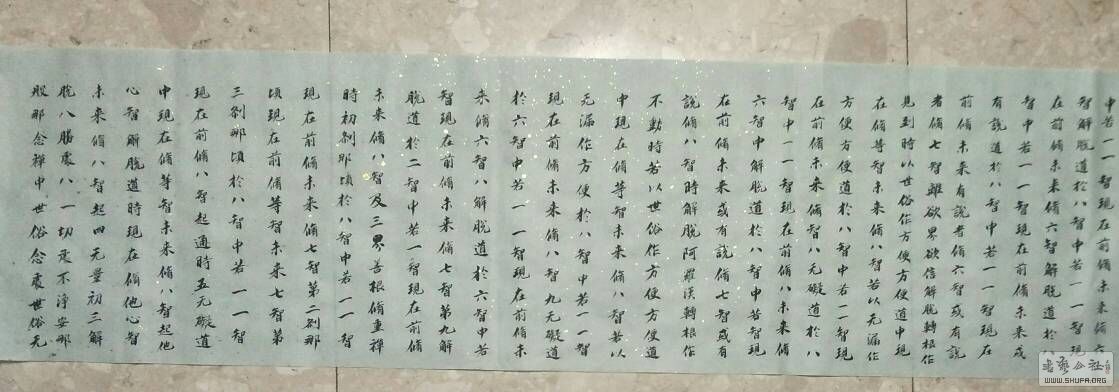 中若一一智現在前脩未來脩六
智解脫道於八智中若一一智現
在前脩未來脩六智解脫道於
智中若一一智現在前脩未來或
有說道於八智中若一一智現在
前脩未來有說者脩六智或有說
者脩七智離欲界欲信解脫轉根作
見到時以世俗作方便方便道中現
在脩等智未來脩八智若以无漏作
方便方便道於八智中若一一智現
在前脩未來脩智八无礙道於八
智中一一智現在前脩八未來脩
六智中解脫道於八智中若智現
在前脩未來或有說脩七智或有
說脩八智時解脫阿羅漢轉根作
不動時若以世俗作方便方便道
中現在脩等智未來脩八智若以
无漏作方便於八智中若一一智
現在前脩未來脩八智九无礙道
於六智中若一一智現在前脩未
來脩六智八解脫道於六智中若
智現在前脩未來脩七智第九解
脫道於二智中若一智現在前脩
未來脩八智及三界善根脩熏禪
時初剎那頃於八智中若一一智
現在前脩未來脩七智第二剎那
頃現在前脩等智未來七智第
三剎那頃於八智中若一一智
現在前脩八智起通時五无礙道
中現在脩等智未來脩八智起他
心智解脫道時現在脩他心智
未來脩八智起四无量初三解
脫八勝處八一切處不淨安那
般那念禪中世俗念處世俗无
书法公社
WWW.SHUFA.ORG